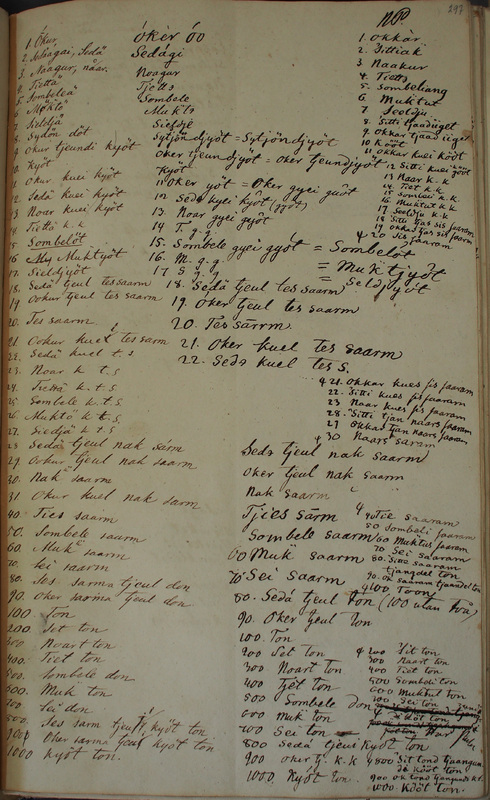 297
1. Okur
2. Sedä
3. Naagur, näär
4. Tiettä
5. Sombeleä
6. Muktö
7. Sieldjä
8. Sydön döt
9 Okur tjeundi kyöt
10. Kyöt
11. Okur kuei kyöt
12. Sedä kuei kyöt
13. Noar kuei kyöt
14. Tiettä k.k
15. Sombelöt
16 Muktyöt
17. Sieldjyöt
18. Sedä tjeul tes saarm
19. Ookur tjeul tes saarm
20. Tes saarm
21. Ookur kuel tes sarm
22. Sedä kuel t.s
23. Noar k t.s
24. Tiettä k.t.s
25. Sombele k.t.s
26. Muktö k t.s
27. Siedjä k t s
28 Sedä tjeul nak särm
29. Ookur tjeul nak saarm
30. Nak saarm
31 Okur kuel nak sarm
40. Ties saarm
50. Sombele saarm
60. Muk saarm
70 sei saarm
80. Ses sarma tjeul don
90. Oker sarma tjeul don
100. Ton
200. Set ton
300. Noart ton
400. Tiet ton
500. Sombele don
600. Muk ton
700 Sei don
800. Ses sarm tjeul kyöt ton
900 Oker sarma tjeul kyöt ton
1000 Kyöt ton.
óker óo
Sedági
Noagur
Tjetts
Sombele
Muktä
Sieldjé
Sytjöndjyöt = Sytjöndjyöt
Oker tjeundjyöt = oker tjeundjyöt
Kyöt
11 Oker yöt = Oker gyei guöt
12. Seda kyei kyöt (gyöt)
13. Noar gyei gyöt
14 T. g. g.
15. Sombele gyei gyöt = Sombelöt
16. M. g. g. = Muktjyöt
17 S g. g = Seldjyöt
18. Sedä tjeul tes saarm
19. Oker tjeul tes saarm
20. Tes särrm
21. Oker kuel tes saarm
22. Seda kuel tes S.
Seda tjeul nak saarm
Oker tjeul nak saarm
Nak saarm
Tjies särm
Sombele saarm
60 Muk saarm
70. Sei saarm
80. Sedá tjeul ton (100 utan två)
90. Oker tjeul ton
100. Ton
200 Set ton
300 Noart ton
400 Tjet ton
500 Sombele don
600 Muk ton
700 Sei ton
800 Sedä tjeui kyöt ton
900 okur tj. k.k
1000. Kyöt ton
NP
1. Okkär
2. Sittiak
3 Naakur
4. Tietts
5. Sombeliang
6. Muktut
7 Seeldju
8. Sitti tjaadigöt
9. Okkar tjaad iigöt
10 Kööt
11 Okkar kuei kööt
12 Sitti kuei kööt
13 Naar k. k
14. Tiet k.k.
15 Sombeli k.k.
16. Muktut k k
17 Seeldju k.k
18 Sitti tjas sis saaram
19 okkar tjas sis saaram
20 Sis saaram
21. Okkar kues sis saaram
22. Sitti kues sis saaram
23 Naar kues sis saaram
28. Sitti tjan naars saaram
29 Okkar tjan naars saaram
30 Naars saram
40 Tie saaram
50 Sombeli saaram
60 Muktus saaram
70 Sei saaram
80. Sitti saaram
tjangdel ton
90. Ok saaram tjaandel ton
100 Toon
200 Sit ton
300 Naart ton
400 Tiet ton
500 Sombeli ton
600 Muktul ton
700 Sei ton
800 Sit tond tjaangun
de kööt ton
900 ok tond tjangundi kt.
1000 Kööt ton.